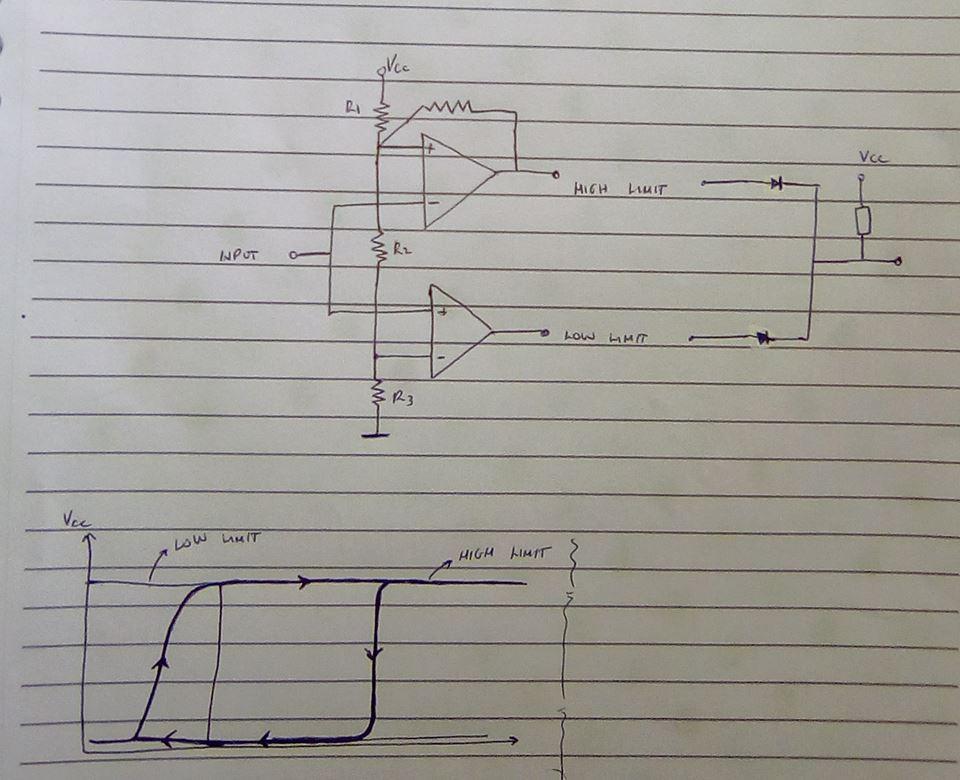 Vcc
R1
+
-
HIGH LIMIT
Vcc
INPUT
R2
+
-
LOW LIMIT
R3
Vcc
LOW LIMIT
HIGH LIMIT